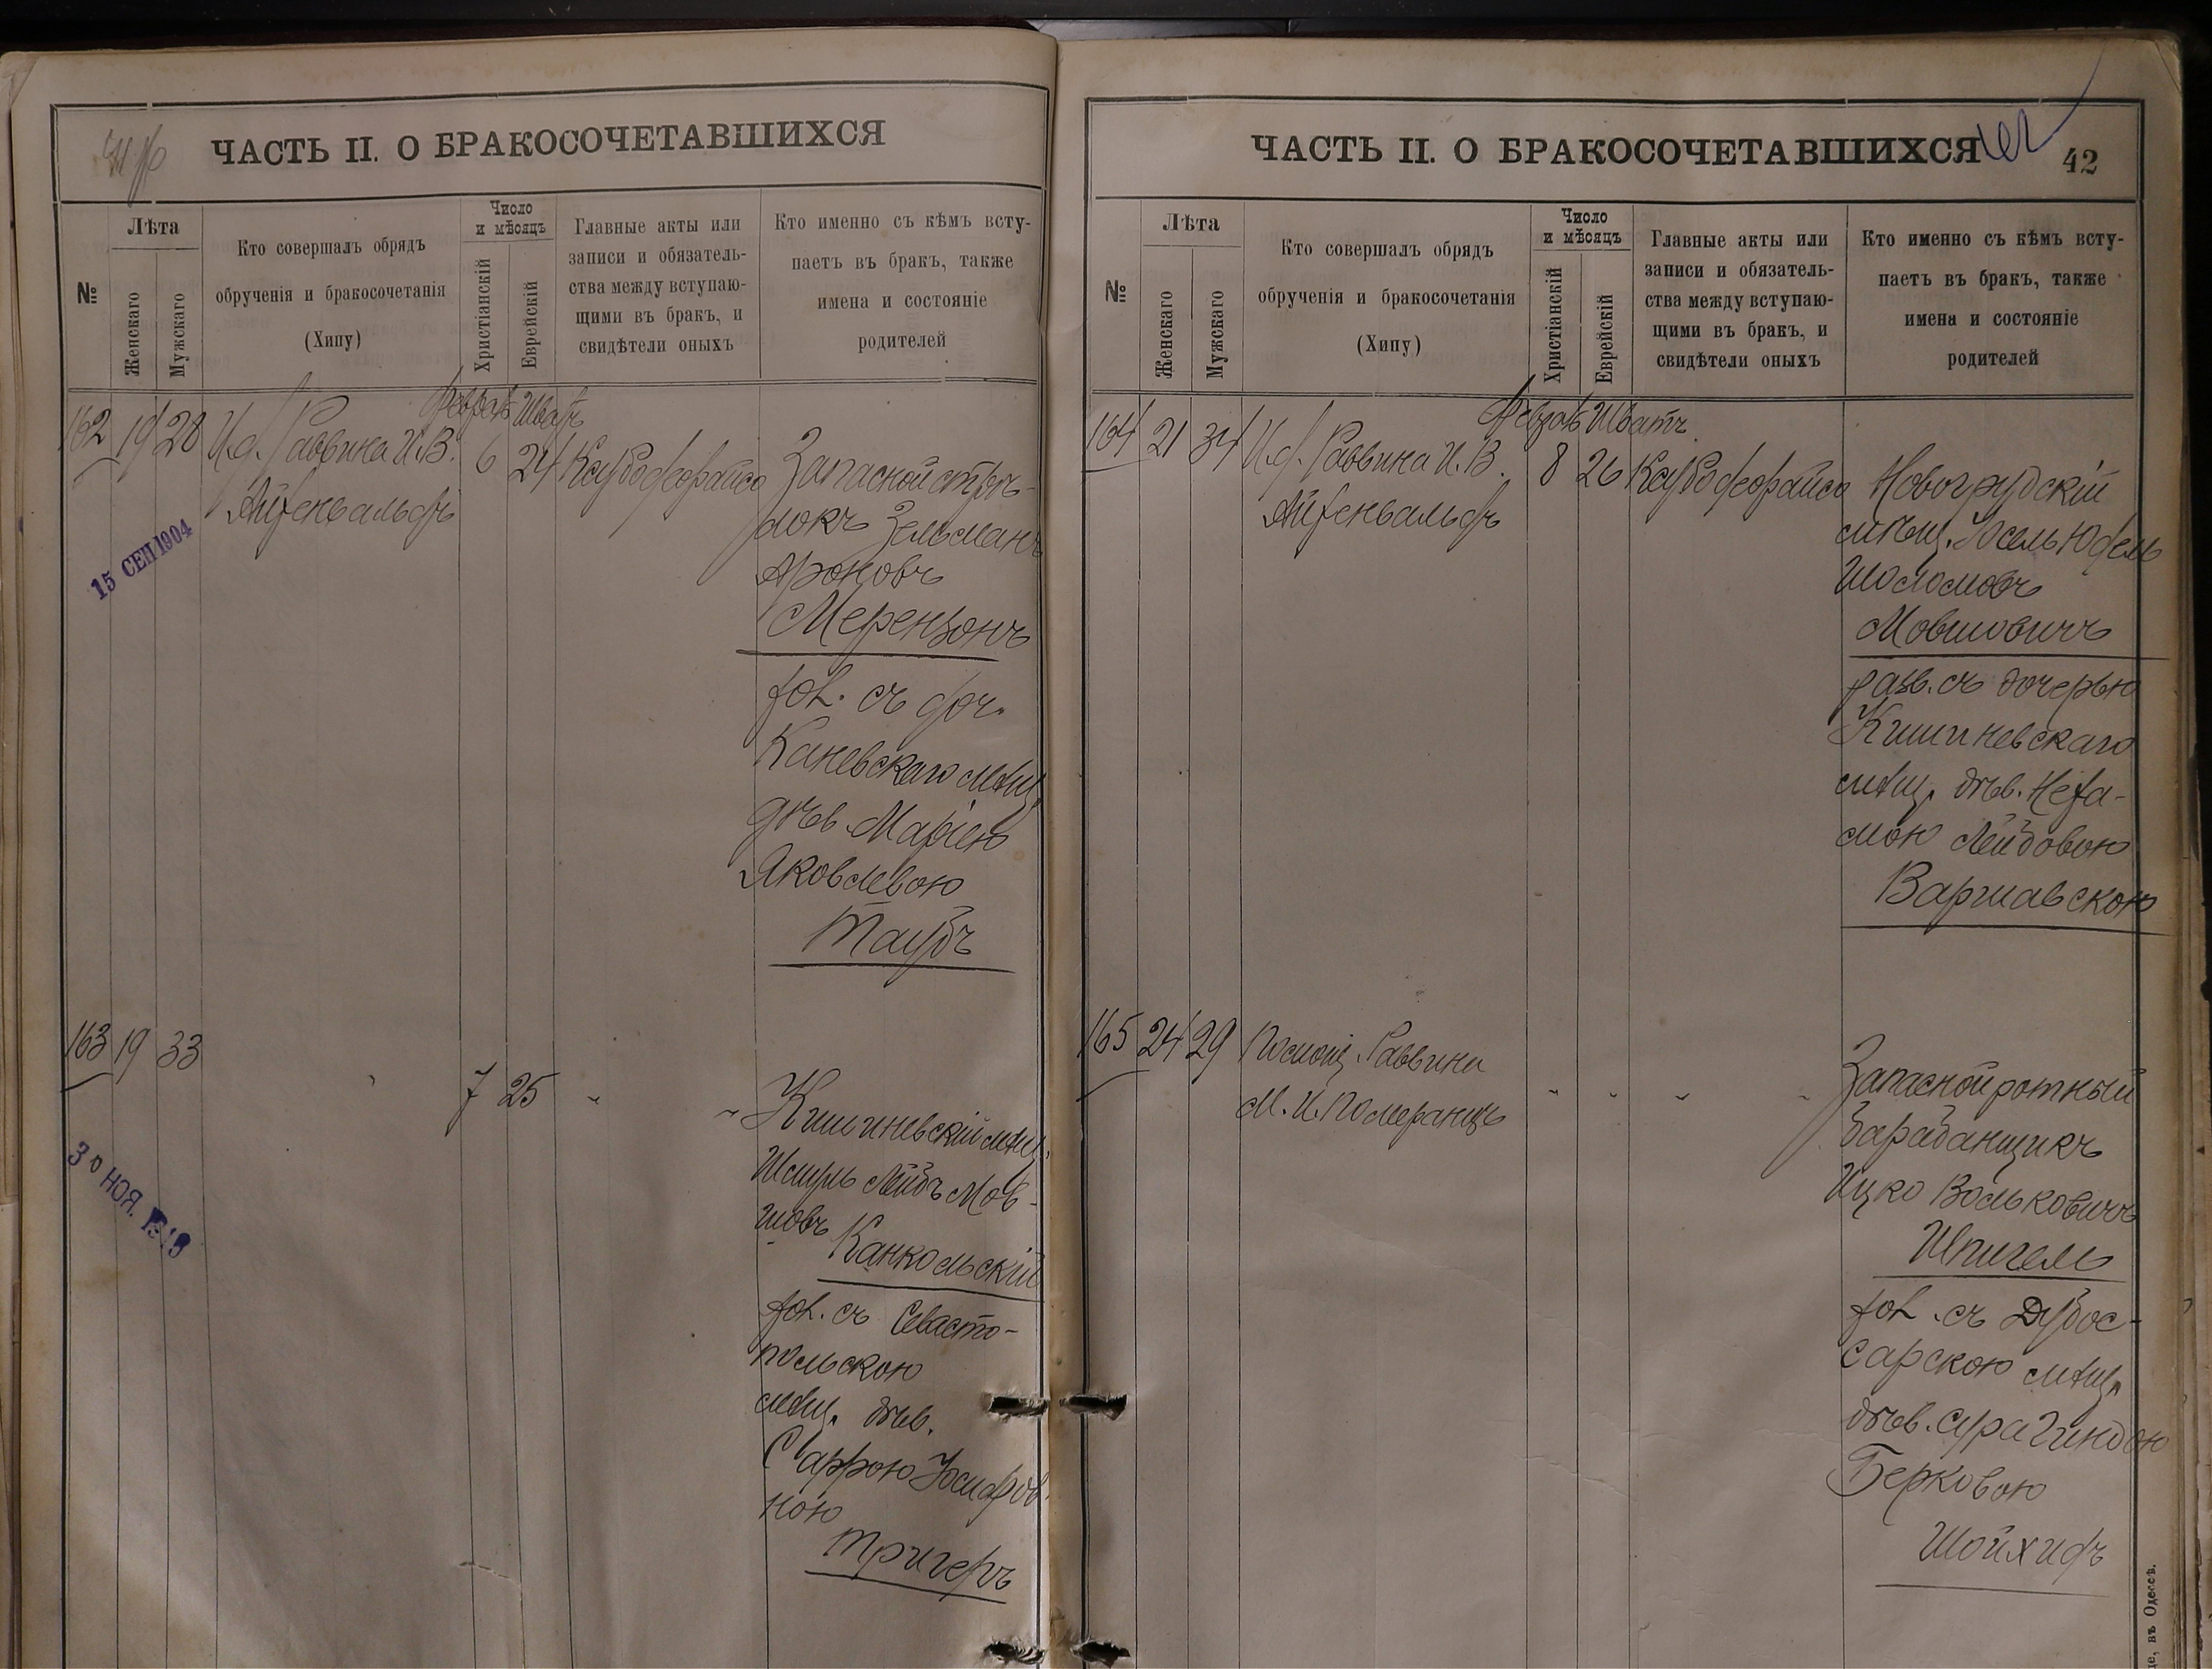 ЧАСТЬ II. О БРАКОСОЧЕТАВШИХСЯ
№
Лѣта
Женскаго
Мужскаго
Кто совершалъ обрядъ
обрученія и бракосочетанія
(Хипу)
Число
и мѣсяцъ
Христіанскій
Еврейскій
Главные акты или
записи и обязатель-
ства между вступаю-
щими въ бракъ, и
свидѣтели оныхъ
Кто именно съ кѣмъ всту-
паетъ въ бракъ, также
имена и состояніе
родителей
162 19 28 И.д. Раввина И.В.
Айзенвальдъ
Февраль Шватъ
6 24
Запасной стрѣ-
локъ Зельманъ
Ароновъ
Меренцонъ
хол. съ доч.
Каневскаго мѣщ.
дѣв. Маріею
Яковлевою
Таубъ
15 СЕН 1904
163 19 33
7 25 „ „
Кишиневскій мѣщ.
Шмуль Лейбъ Мов-
шовъ Канкольскій
хол. съ Севасто-
польскою
мѣщ. дѣв.
Саррою Іосифов-
ною
Тригеръ
30 НОЯ.
ЧАСТЬ II. О БРАКОСОЧЕТАВШИХСЯ
42
№
Лѣта
Женскаго
Мужскаго
Кто совершалъ обрядъ
обрученія и бракосочетанія
(Хипу)
Число
и мѣсяцъ
Христіанскій
Еврейскій
Главные акты или
записи и обязатель-
ства между вступаю-
щими въ бракъ, и
свидѣтели оныхъ
Кто именно съ кѣмъ всту-
паетъ въ бракъ, также
имена и состояніе
родителей
164 21 34 И.д. Раввина И.В.
Айзенвальдъ
Февраль Шватъ
8 26
Новогрудскій
мѣщ. Іосель Юдель
Шоломовъ
Мовшовичъ
разв. съ дочерью
Кишиневскаго
мѣщ. дѣв. Неха-
мою Лейбовою
Варшавскою
165 24 29 Помощ. Раввина
М. И. Померанцъ
„ „ „ „
Запасной ротный
барабанщикъ
Ицко Вольковичъ
Шпигель
хол. съ Дубос-
сарскою мѣщ.
дѣв. Сура Гиндою
Берковою
Шойхидъ
въ Одессѣ.